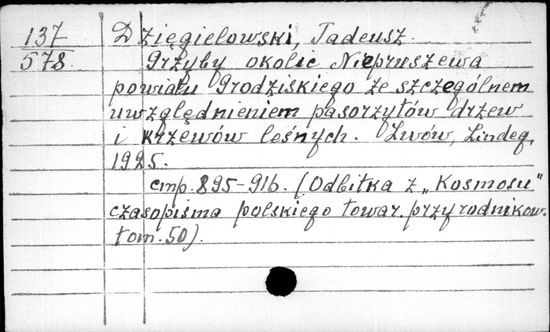 137 Dzięgielowski, Tadeusz.
578. Grzyby okolic Niepruszewa
powiatu Grodziskiego ze szczególnem
uwzględnieniem pasorzytów drzew
i krzewów leśnych. Lwów, Lindeg,
1925.
стр. 895-916. (Odbitka z „Kosmosu"
czasopisma polskiego towar. przyrodnikow.
tom. 50).